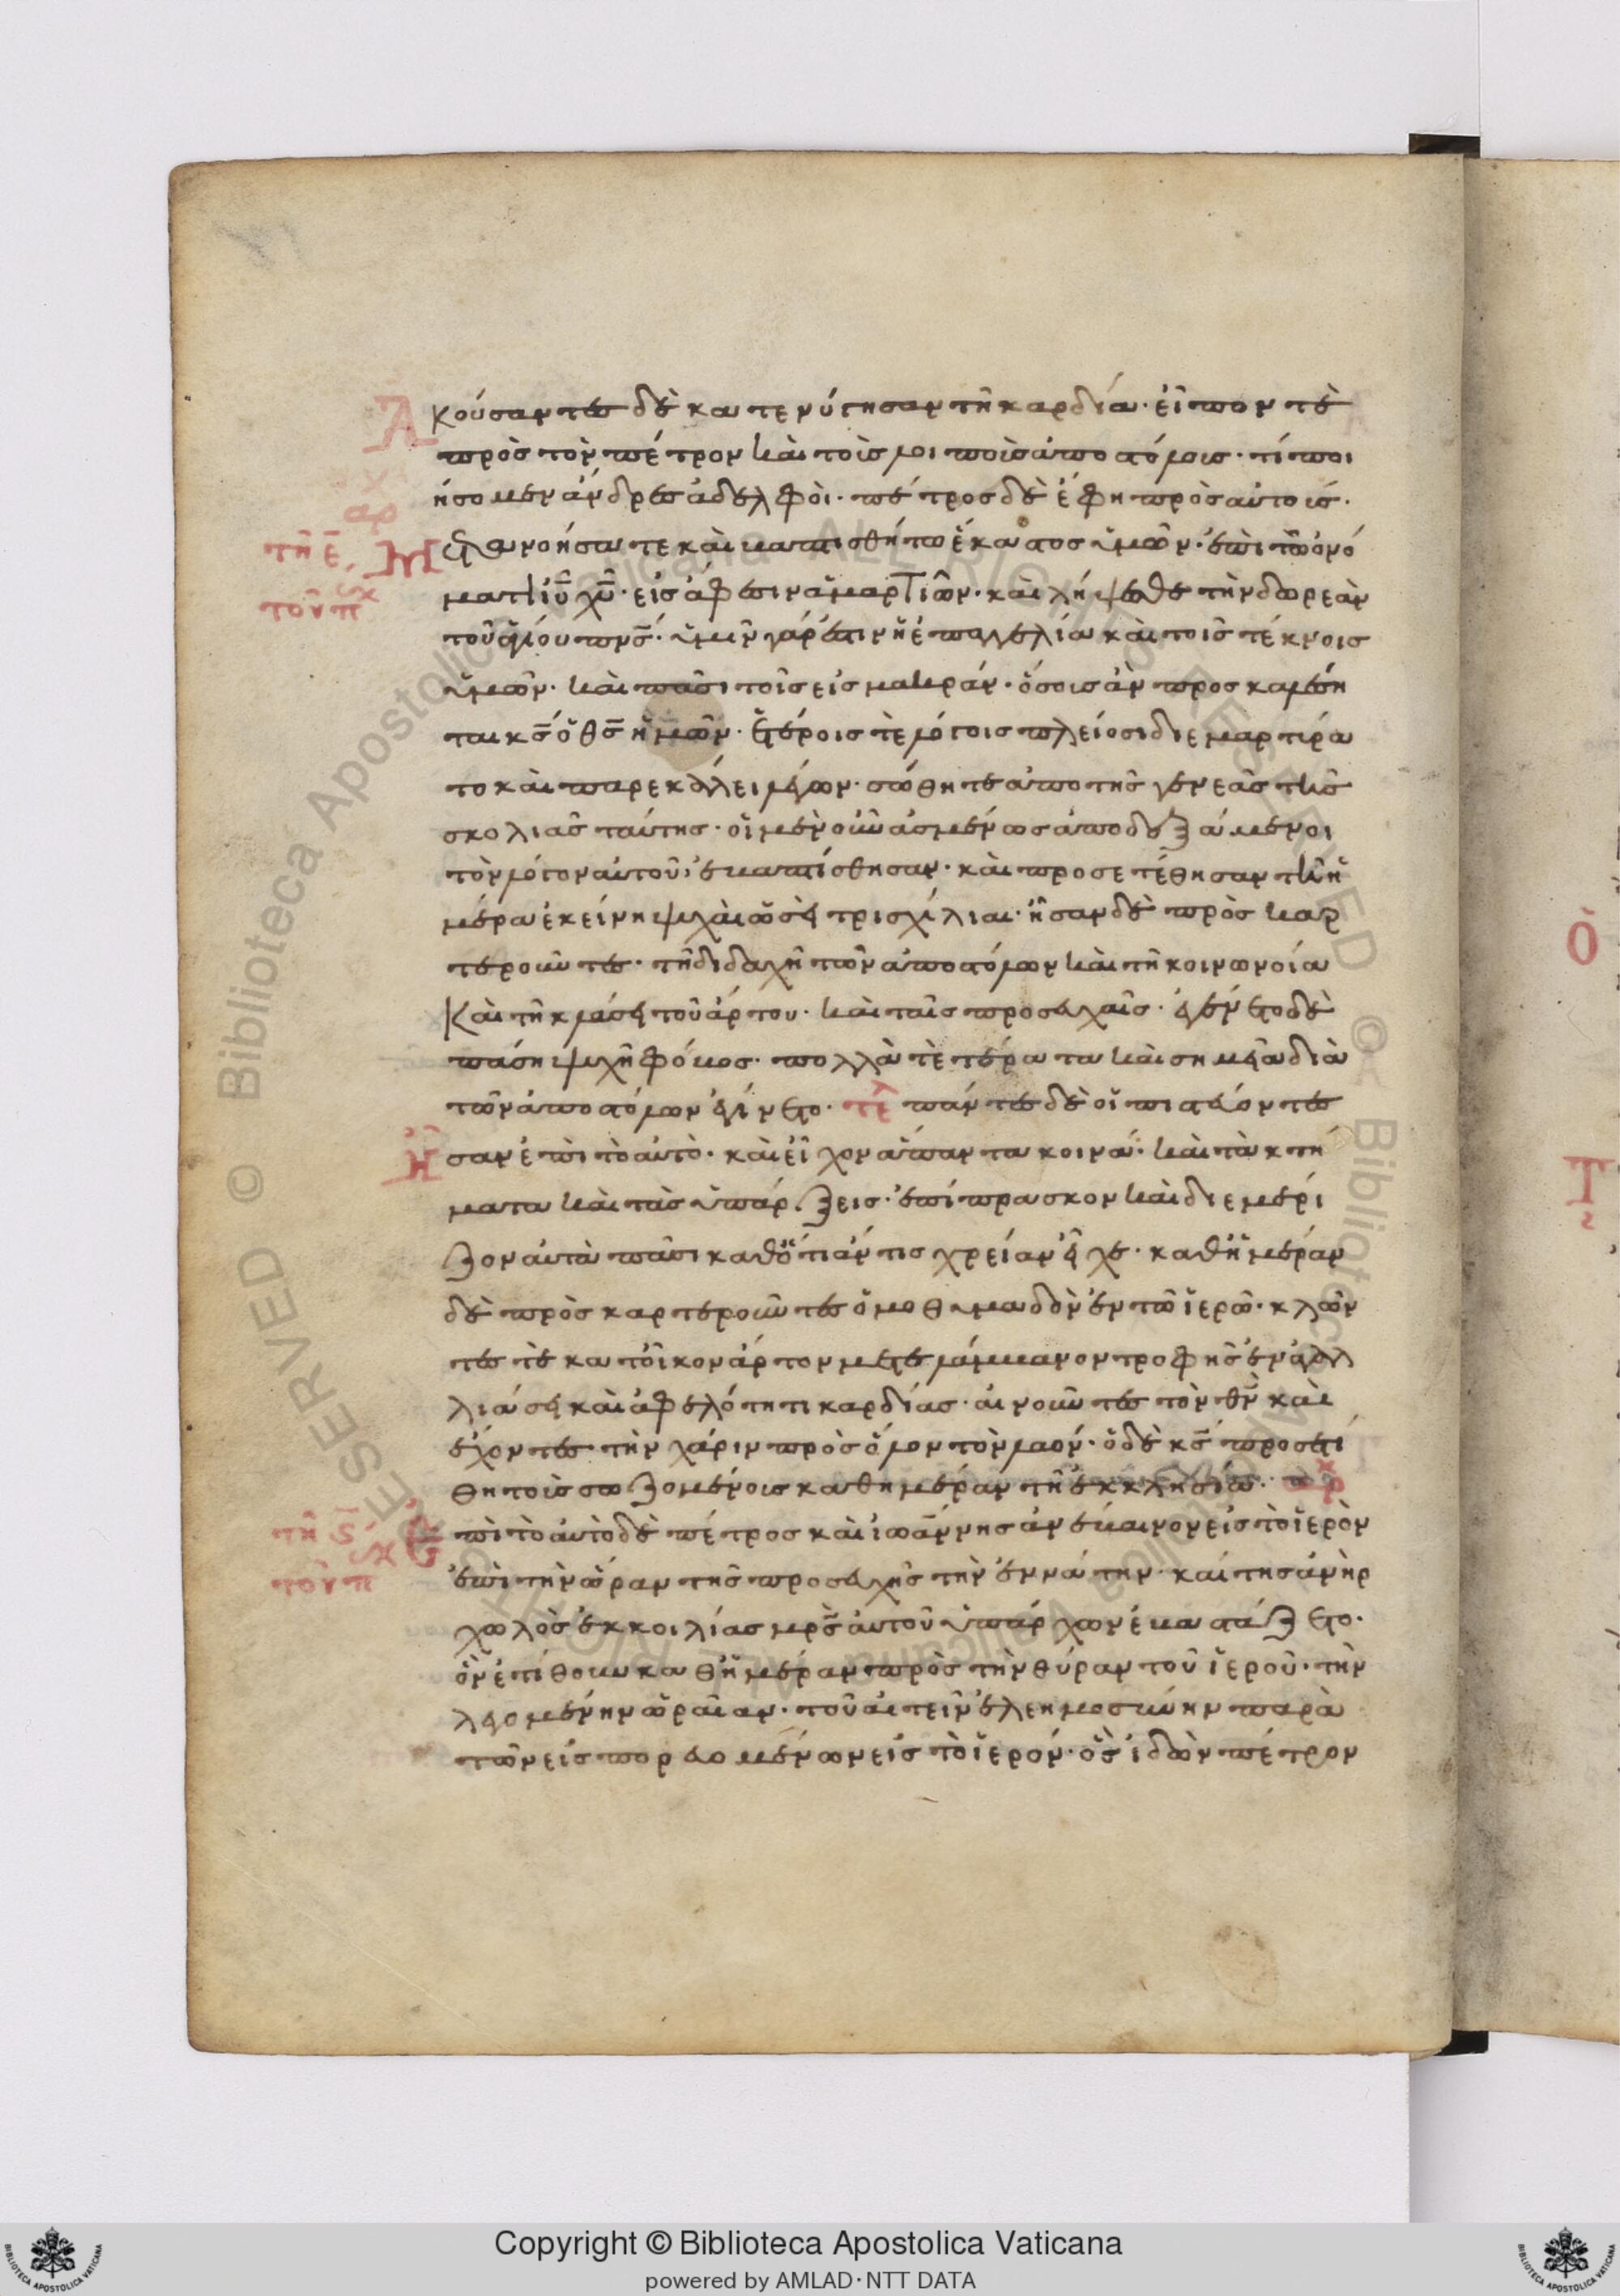 Ἀκούσαντες δὲ κατενύγησαν τῇ καρδία· εἶπον τὲ
πρὸς τὸν πέτρον καὶ τοὶς λοιποὶς ἀποστόλοις· τί ποι
ήσομεν ἄνδρες ἀδελφὸι· πέτρος δὲ ἔφη πρὸς αὐτοὶς·
ἀρ
τῆ ε̄
σχ
τοῦ π
Μετανοήσατε καὶ βαπτισθήτω ἕκαστος ὑμῶν· ἐπὶ τῶ ὀνό
ματι ἰῦ χῦ· εἰς ἄφεσιν ἁμαρτιῶν· καὶ λήψεσθε τὴν δωρεὰν
τοῦ ἁγίου πνς̄· ὑμῖν γάρ ἐστιν ἡ ἐπαγγελία καὶ τοῖς τέκνοις
ὑμῶν· καὶ πᾶσι τοῖς εἰς μακράν· ὅσοις ἂν προσκαλέση
ται κς̄ ὁ θς̄ ἡμῶν· ἑτέροις τὲ λόγοις πλείοσι διεμαρτύρα
το καὶ παρεκάλει λέγων· σώθητε ἀπο τῆς γενεᾶς τῆς
σκολιᾶς ταύτης· οἱ μὲν οὖν ἀσμένως ἀποδεξάμενοι
τὸν λόγον αὐτοῦ, ἐβαπτίσθησαν· καὶ προσετέθησαν τῆ ἡ
μέρα ἐκείνη ψυχὰι ὡσεὶ τρισχίλιαι· ἦσαν δὲ πρὸς καρ
τεροῦντες· τῆ διδαχῆ τῶν ἀποστόλων καὶ τῆ κοινωνοία
Καὶ τῆ κλάσει τοῦ ἄρτου· καὶ ταῖς προσευχαῖς· ἐγένετο δὲ
πάση ψυχῆ φόβος· πολλὰ τὲ τέρατα καὶ σημεῖα διὰ
τῶν ἀποστόλων ἐγίνετο· τε̄λ πάντες δὲ οἱ πιστεύοντες
Ἦσαν ἐπι τὸ αὐτὸ· καὶ εἶχον ἅπαντα κοινά· καὶ τὰ κτή
ματα καὶ τὰς ὑπάρξεις· ἐπίπρασκον καὶ διεμέρι
ζον αὐτὰ πᾶσι καθότι ἄν τις χρείαν εἶχε· καθἡμέραν
δὲ πρὸς καρτεροῦντες ὁμοθυμαδὸν ἐν τῶ ἱερῶ· κλῶν
τες τὲ κατοἶκον ἄρτον μετελάμβανον τροφῆς ἐν ἀγαλ
λιάσει καὶ ἀφελότητι καρδίας· αἰνοῦντες τὸν θν̄ καὶ
ἔχοντες τὴν χάριν πρὸς ὅλον τὸν λαόν· ὁ δὲ κς̄ προσετί
θη τοὶς σωζομένοις καθημέραν τῆ ἐκκλησία·
τῆ ς̄
σχ
τοῦ π
Ἐπὶ τὸ αὐτὸ δὲ πέτρος καὶ ἰωάννης ἀνέβαινον εἰς τὸ ἱερὸν
ἐπὶ τὴν ὥραν τῆς προσευχῆς τὴν ἐννάτην· καί της ἀνὴρ
χωλὸς ἐκ κοιλίας μρς̄ αὐτοῦ ὑπάρχων ἐβαστάζετο·
ὃν ἐτίθουν καθἡμέραν πρὸς τὴν θύραν τοῦ ἱεροῦ· τὴν
λεγομένην ὡραῖαν· τοῦ αἰτεῖν ἐλεημοσύνην παρὰ
τῶν εἰσπορευομένων εἰς τὸ ἱερόν· ὃς ἰδὼν πέτρον
Ὁ
Τ
Copyright © Biblioteca Apostolica Vaticana
powered by AMLAD·NTT DATA